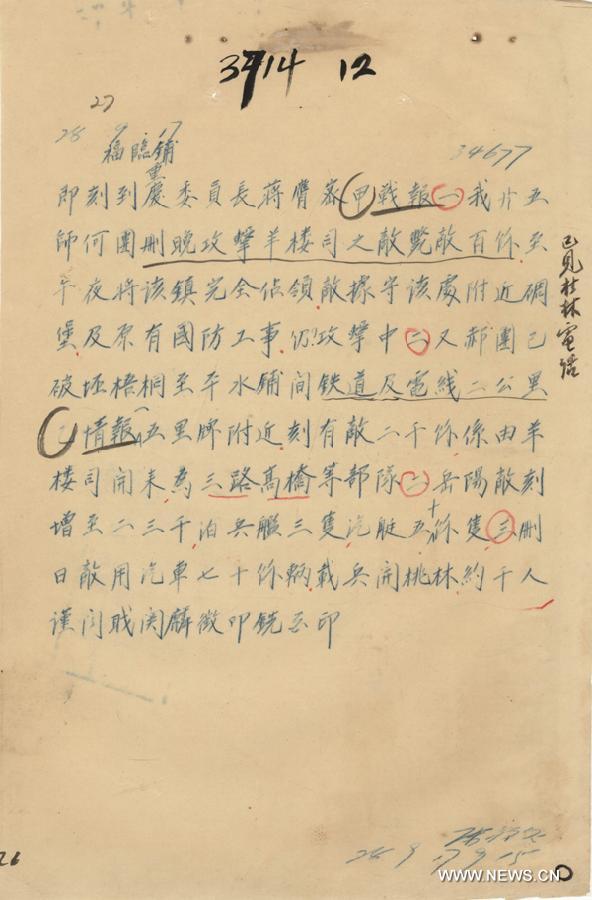 3714 12
27
28 9 17
34677
福臨鋪
即刻到慶委員長蔣膺密甲戰報一我廿五
師何團刪晚攻擊羊楼司之敵斃敵百餘至
午夜將该鎮完全佔領敵據守该處附近碉
堡及原有國防工事仍攻擊中二又郝團已
破坯梧桐至平水鋪间鉄道及電線二公里
情報五里牌附近刻有敵二千餘係由羊
楼司開来為三路高橋等部隊二岳陽敵刻
增至二三千泊兵艦三隻汽艇五十餘隻三刪
日敵用汽車七十餘輛載兵開桃林約千人
谨闻戝関麟徵叩銑印
已見杜林電话
28 9 17 9 15
26
WWW.NEWS.CN